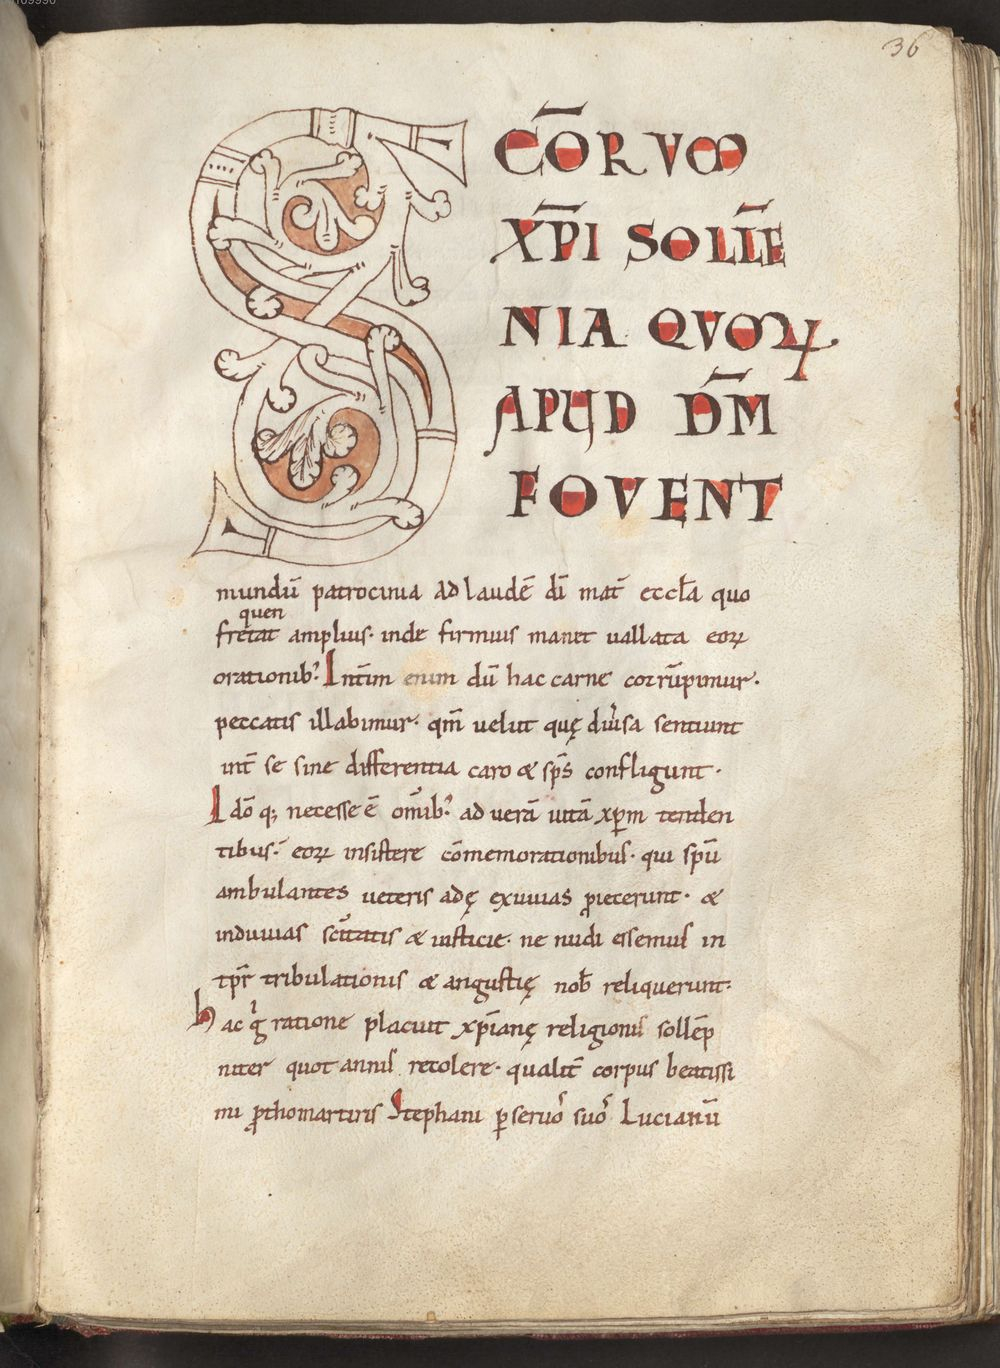 36
SC̄ORVM
XP̄I SOLLE̅
NIA QUOꝜ
APUD DM̄
FOVENT
mundū patrocinia ad laudē dī mat̄ eccl̄a quo
quen
fretat amplius· inde firmius manet uallata eoꝝ
orationibꝰ Int̄im enim dū hac carne corrūpimur·
peccatis illabimur· qm̄ velut quę diu͛sa sentiunt
int̄ se sine differentia caro & sp̄s confligunt·
Idō qꝫ necesse ē om̄ibꝰ ad uerā uitā xp̄m tenden
tibus· eoꝝ insistere cōmemorationibus· qui sp̄u
ambulantes ueteris adę exuuias ꝓiecerunt· &
induuias sc̄itatis & iusticie· ne nudi essemus in
tp̄r tribulationis & angustię nob̄ reliquerunt·
hac gͥ ratione placuit xp̄ianę religionis sollēp
niter quot annis recolere· qualit̄ corpus beatissi
mi ꝓthomartiris Stephani ꝑ seruū suū Lucianū